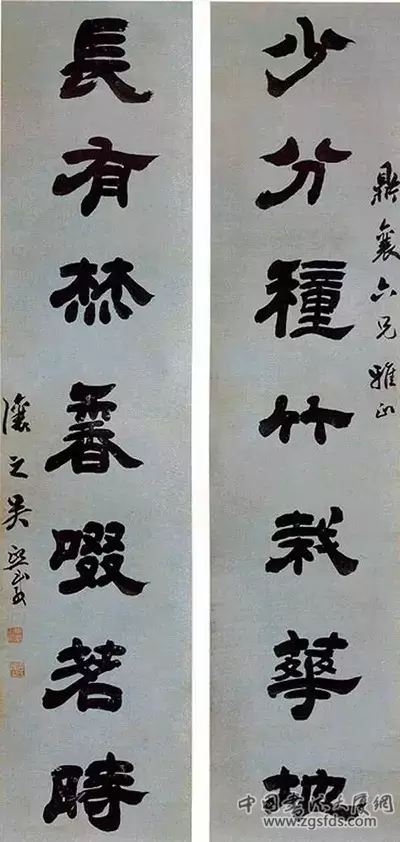 鼎襄六兄雅正
少分種竹栽華地
長有焚香啜茗時
讓之吳熙載
中国书法大展網
www.zgsfds.com